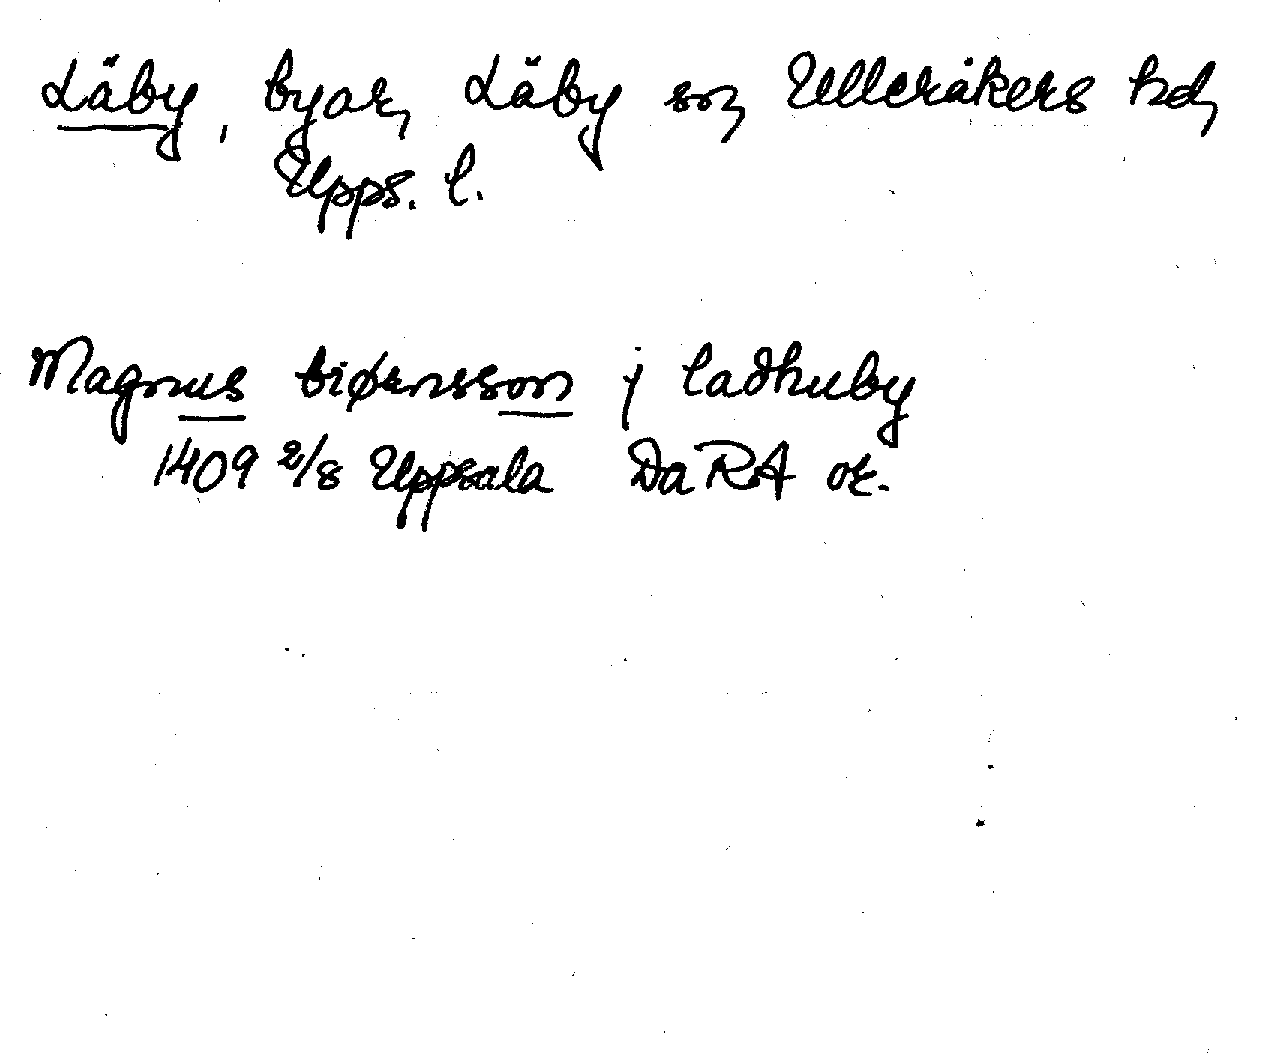 Läby, byar, Läby sn, Ulleråkers hd,
Upps. l.
Magnus biørnsson j ladhuby
1409 2/8 Uppsala DaRA or.